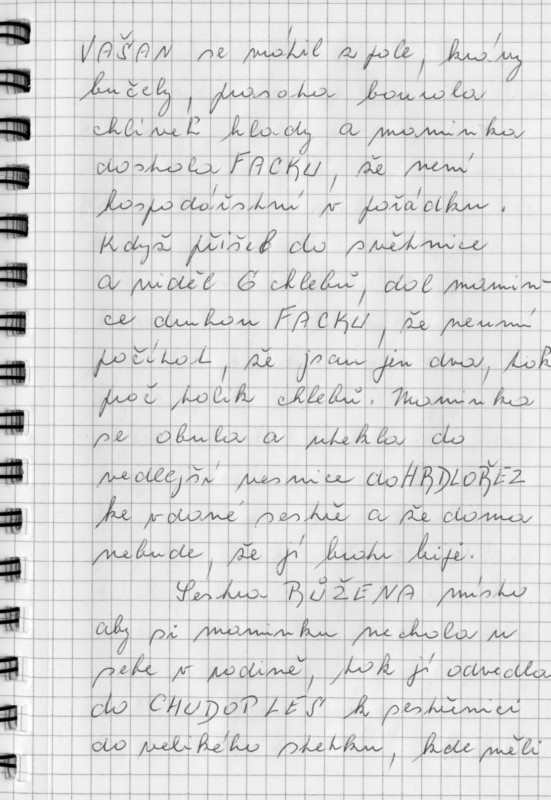 VAŠAN se vrátil z pole, krávy
bučely, prasata bourala
chlívek hlady a maminka
dostala FACKU, že není
hospodářství v pořádku.
Když přišel do světnice
a viděl 6 chlebů, dal mamin-
ce druhou FACKU, že neumí
počítat, že jsou jen dva, tak
proč tolik chlebů. Maminka
se obula a utekla do
vedlejší vesnice do HRDLOŘEZ
ke vdané sestře a že doma
nebude, že jí bratr bije.
Sestra RŮŽENA místo
aby si maminku nechala u
sebe v rodině, tak jí odvedla
do CHUDOPLES k sestřenici
do velikého statku, kde měli